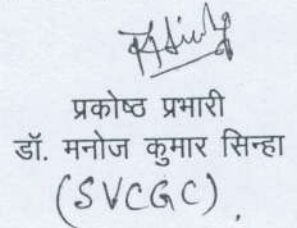 प्रकोष्ठ प्रभारी
डॉ. मनोज कुमार सिन्हा
(SVCGC).